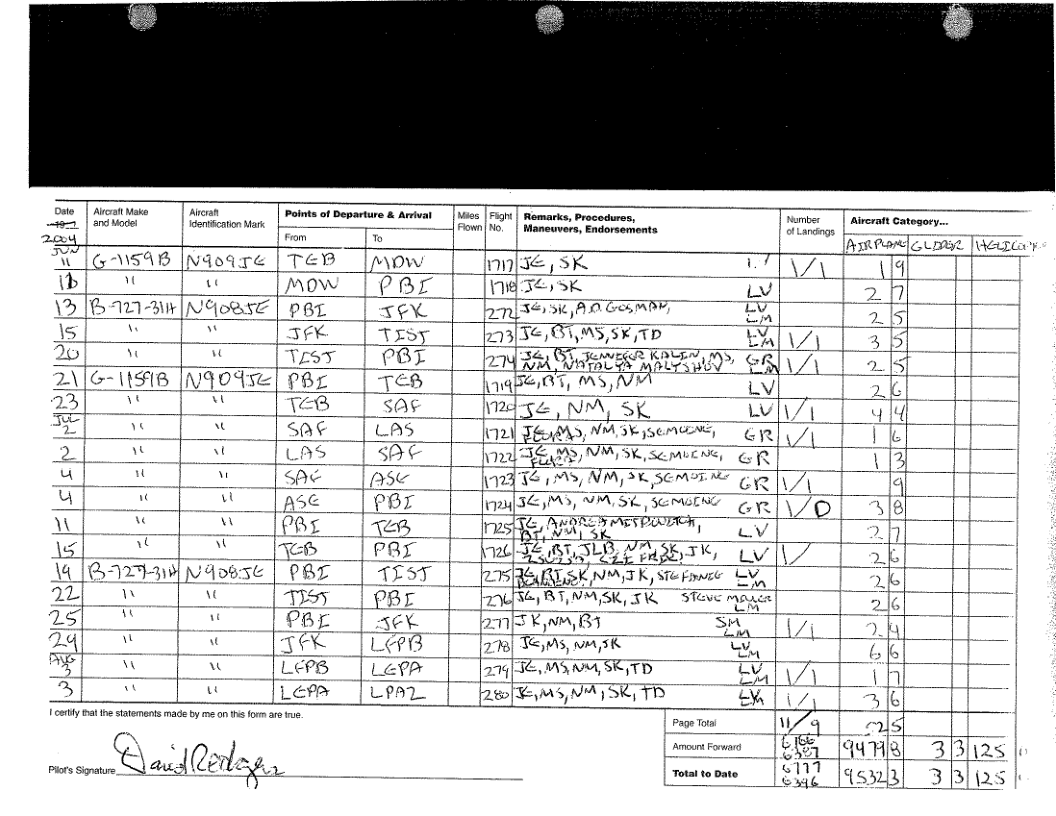 Date Aircraft Make and Model Aircraft Identification Mark Points of Departure & Arrival Miles Flown Flight No. Remarks, Procedures, Maneuvers, Endorsements Number of Landings Aircraft Category...
19
2004 From To AIRPLANE GLIDER
JUN 11 G-1159B N909JE TEB MDW 1717 JE, SK 1/1 1 9
" " MDW PBI 1718 JE, SK LV 2 7
13 B-727-31H N908JE PBI JFK 272 JE, SK, LV LM 2 5
15 " " JFK TIST 273 JE, BT, MS, SK, TD LV LM 1/1 3 5
20 " " TIST PBI 274 JE, BT, JENNIFER KALIN, MS, GR
NM, NATALYA MALYSHOV LM 1/1 2 5
21 G-1159B N909JE PBI TEB 1719 JE, BT, MS, NM LV 2 6
23 " " TEB SAF 1720 JE, NM, SK LV 1/1 4 4
JUL 2 " " SAF LAS 1721 JE, MS, NM, SK, GR 1/1 1 6
2 " " LAS SAF 1722 JE, MS, NM, SK, GR 1 3
4 " " SAF ASE 1723 JE, MS, NM, SK, GR 1/1 9
4 " " ASE PBI 1724 JE, MS, NM, SK, GR 1/0 3 8
11 " " PBI TEB 1725 JE,
BT, NM, SK LV 2 7
15 " " TEB PBI 1726 JE, BT, JLB, NM, SK, JK, LV 1/ 2 6
19 B-727-31H N908JE PBI TIST 275 JE, BT, SK, NM, JK, LV LM 2 6
22 " " TIST PBI 276 JE, BT, NM, SK, JK STEVE LM 2 6
25 " " PBI JFK 277 JK, NM, BT SM LM 1/1 2 4
29 " " JFK LFPB 278 JE, MS, NM, SK LV LM 6 6
AUG 3 " " LFPB LEPA 279 JE, MS, NM, SK, TD LV LM 1/1 1 7
3 " " LEPA LPAZ 280 JE, MS, NM, SK, TD 1/1 3 6
I certify that the statements made by me on this form are true.
Page Total 11/9 5
Amount Forward 6387 9479 8 3 3 125
Pilot's Signature David Rodgers
Total to Date 6396 9532 3 3 3 125